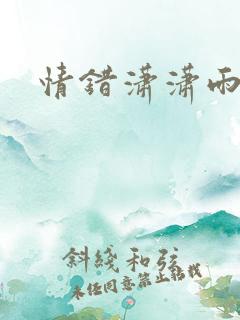 情错潇潇雨
斜线和弦
未经同意禁止转载